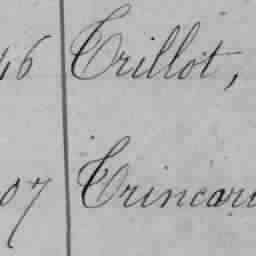 46 Trillot,
07 Trincar